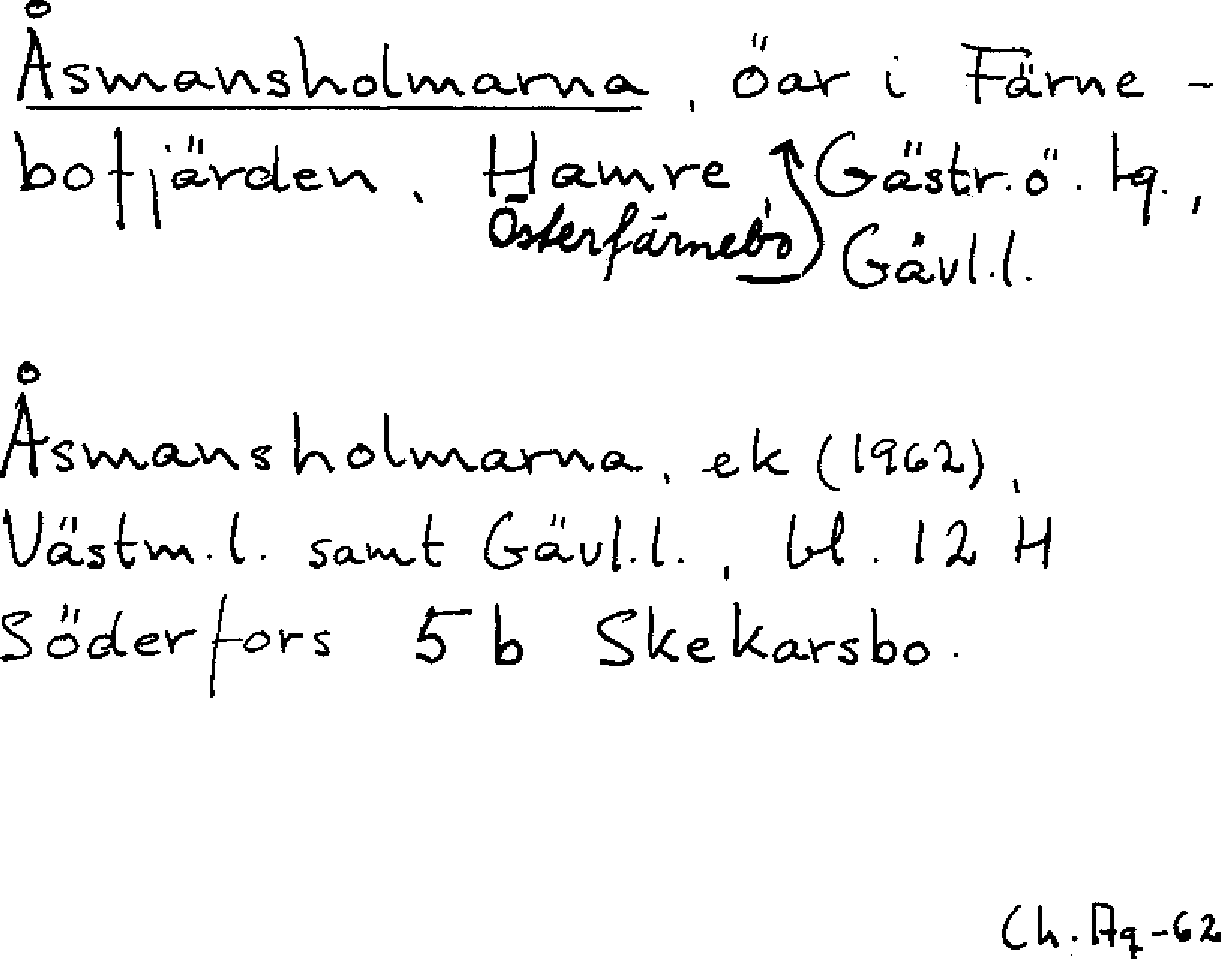 Åsmansholmarna, öar i Färne-
bofjärden, Hamre, Gästr. ö. tg.,
Österfärnebo Gävl.l.
Åsmansholmarna, ek (1962),
Västm.l. samt Gävl.l., bl. 12 H
Söderfors 5 b Skekarsbo.
Ch. Aq -62